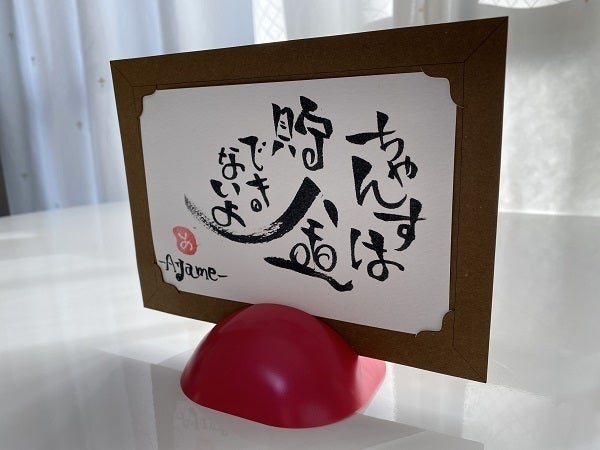 ちゃんすは
貯金
できの
ないよ
め
-Ayame-